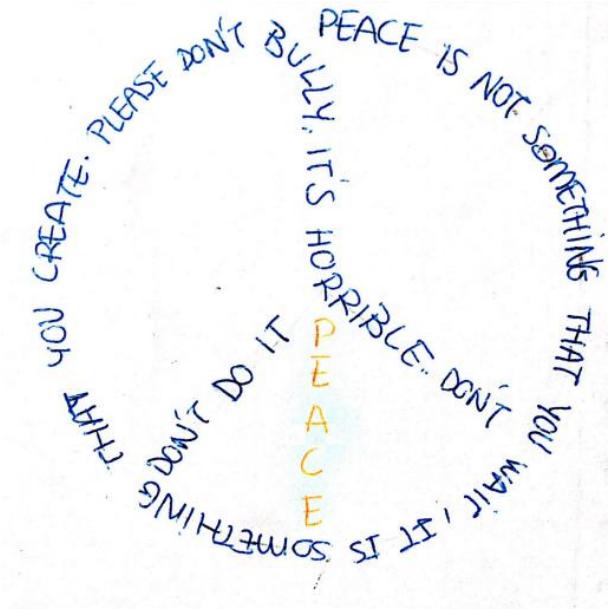 PEACE IS NOT SOMETHING THAT YOU WAIT, IT IS SOMETHING THAT YOU CREATE. PLEASE DON'T BULLY. IT'S HORRIBLE. DON'T
DON'T DO IT
PEACE